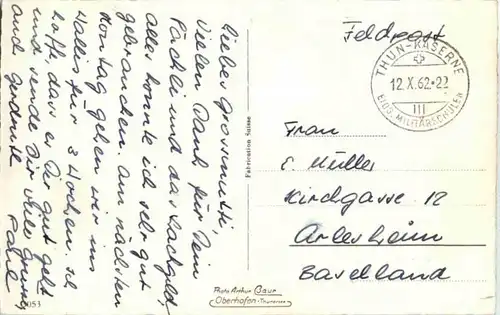 Liebes Grossmutti,
Vielen Dank für Dein
Päckli und das Sackgeld,
alles konnte ich sehr gut
gebrauchen. Am nächsten
Montag gehen wir ins
Wallis für 3 Wochen. Ich
hoffe, dass es Dir gut geht
und sende Dir viele Grüsse
und
Fabrication Suisse
Feldpost
THUN-KASERNE
12.X.62-22
III
EIDG. MILITÄRSCHULEN
Frau
E. Müller
Kirchgasse 12
Arlesheim
Baselland
Photo Arthur Baur
Oberhofen-Thunersee
053